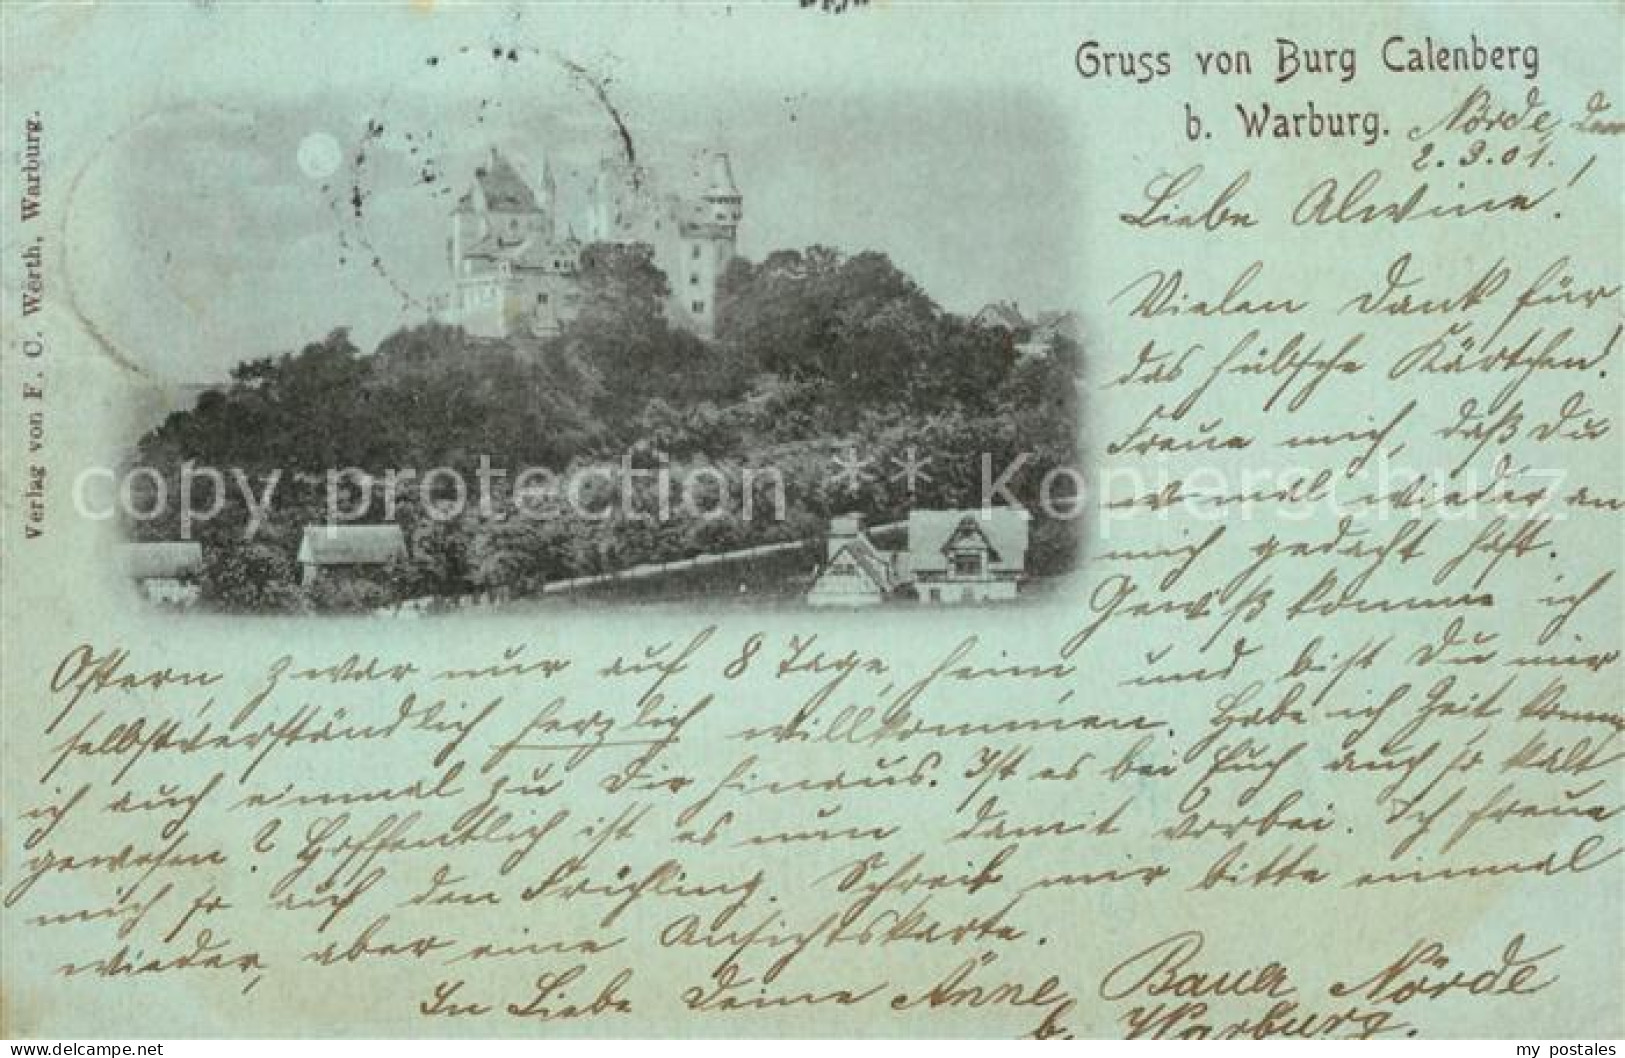 Gruss von Burg Calenberg
b. Warburg.
Nörde, den
2.3.01.
Liebe Alwine!
Vielen Dank für
das hübsche Kärtchen!
Freue mich, daß Du
mal wieder an
mich gedacht hast.
Gewiß komme ich
Ostern, zwar nur auf 8 Tage, heim, und bist Du mir
selbstverständlich herzlich willkommen. Habe ich Zeit komme
ich auch einmal zu Dir hinaus. Ist es bei Euch auch so kalt
gewesen? Hoffentlich ist es nun damit vorbei. Ich freue
mich so auf den Frühling. Schreib mir bitte einmal
wieder, aber eine Ansichtskarte.
In Liebe Deine Änne Bauer Nörde
b. Warburg.
Verlag von F. C. Wërth, Warburg.
copy protection ** Kopierschutz
my postales